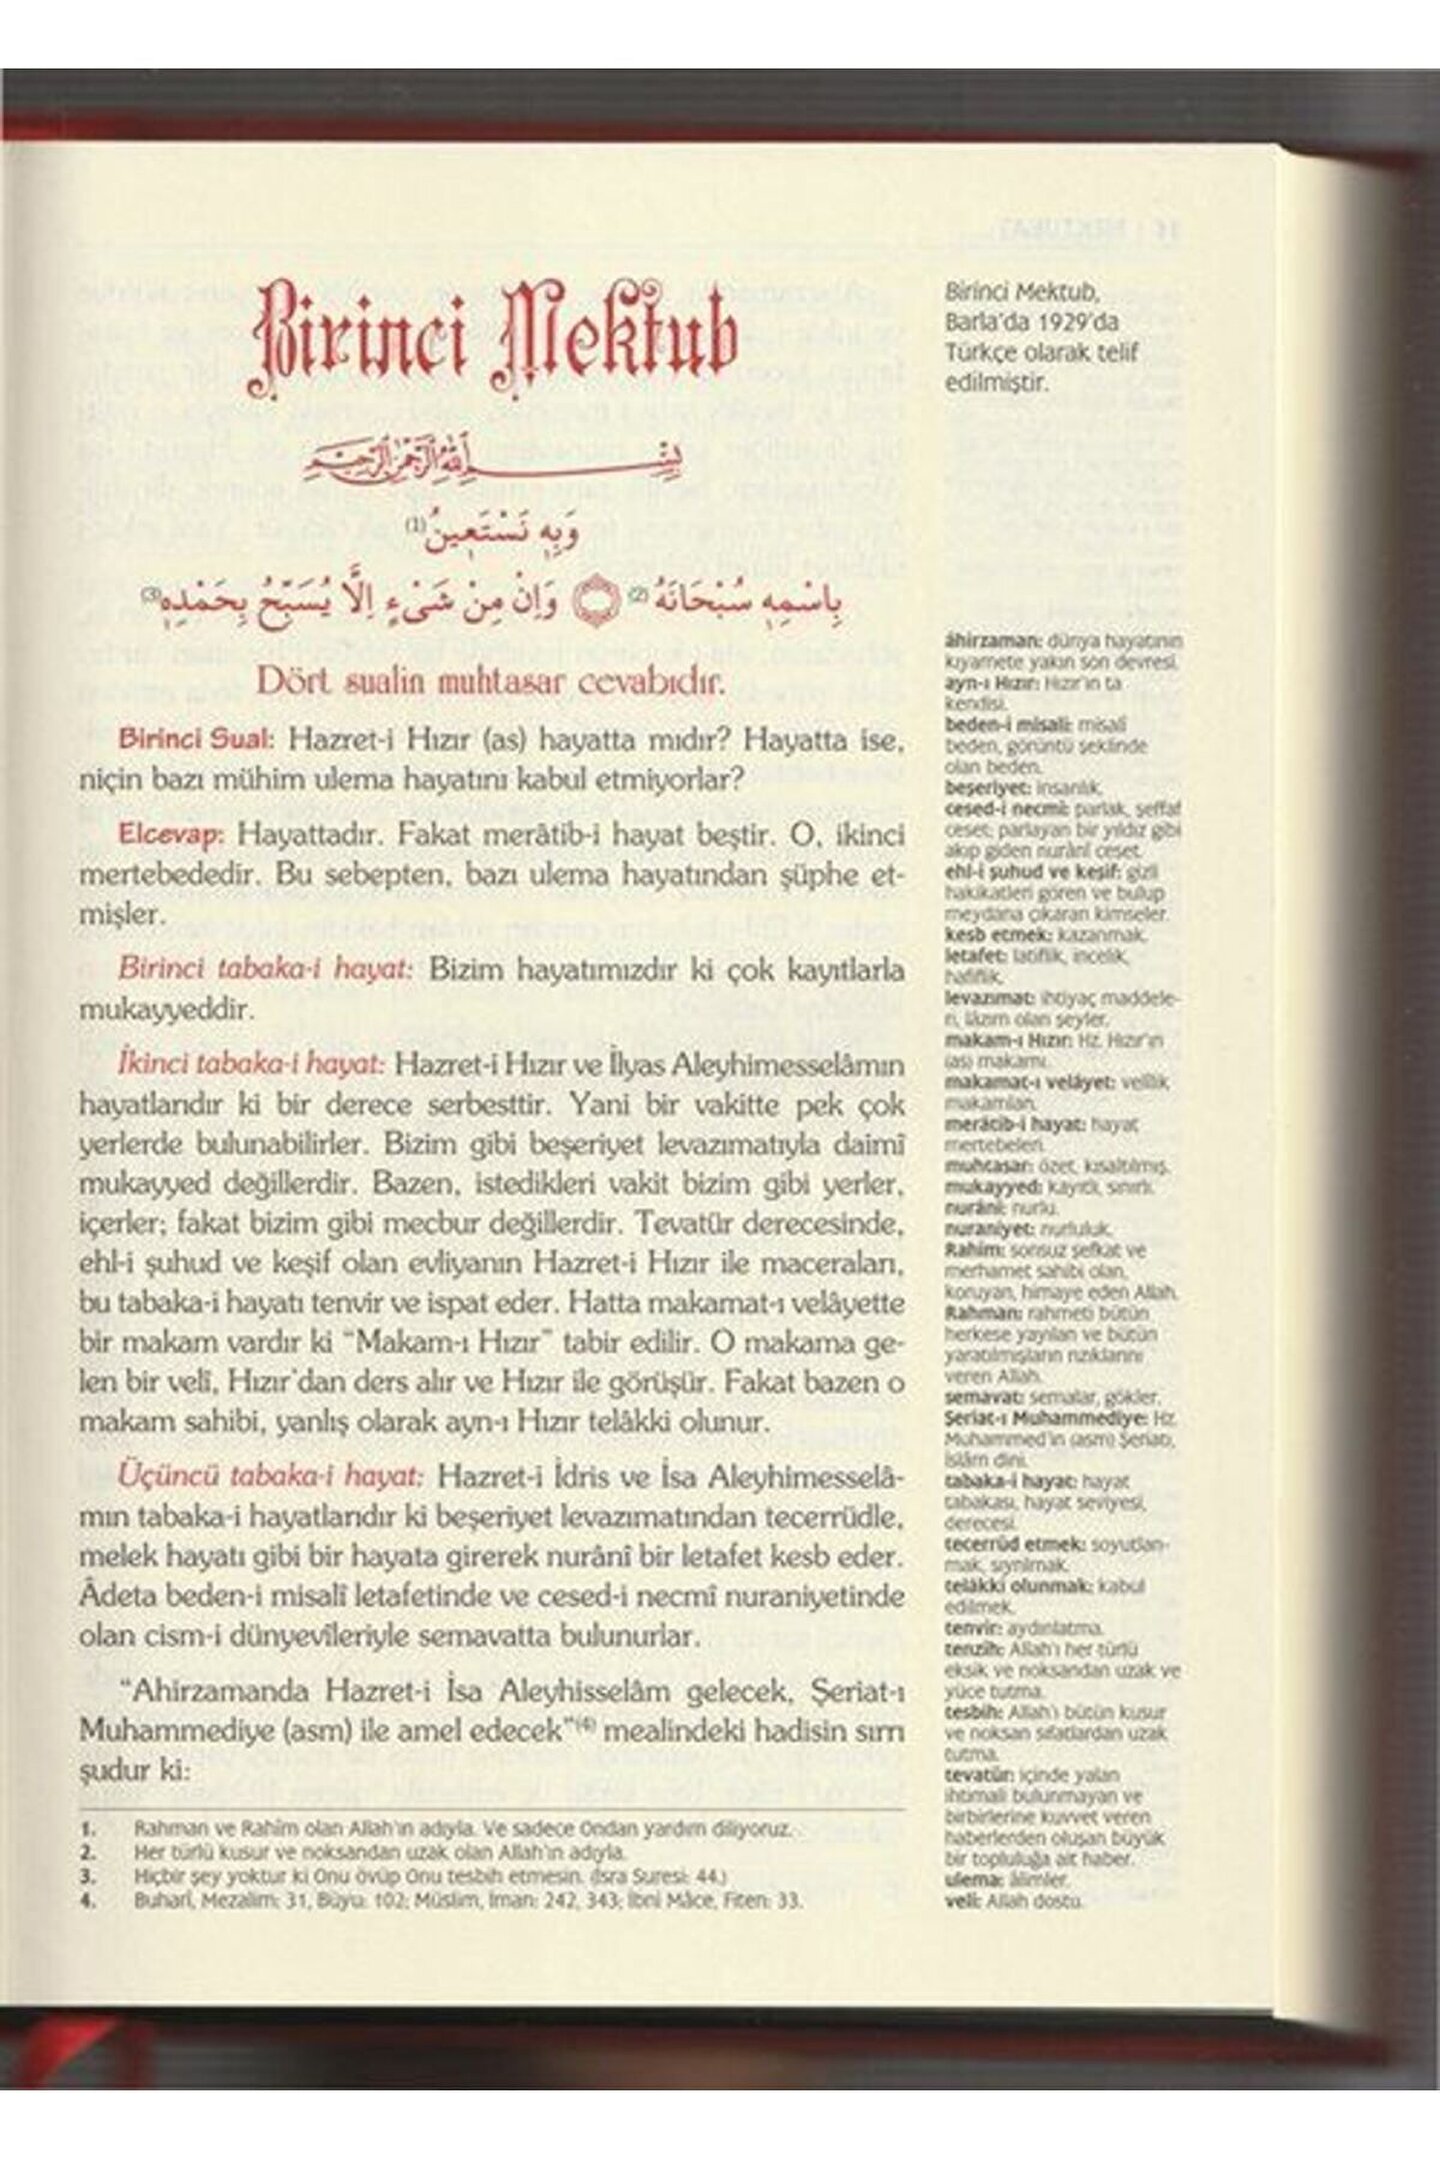 Birinci Mektub
بِسْــــــمِ اللهِ الرَّحْمٰنِ الرَّحِيمِ
وَبِهٖ نَسْتَعٖينُ (1)
بِاسْمِهٖ سُبْحَانَهُ (2) وَاِنْ مِنْ شَىْءٍ اِلَّا يُسَبِّحُ بِحَمْدِهٖ (3)
Dört sualin muhtasar cevabıdır.
Birinci Sual: Hazret-i Hızır (as) hayatta mıdır? Hayatta ise,
niçin bazı mühim ulema hayatını kabul etmiyorlar?
Elcevap: Hayattadır. Fakat merâtib-i hayat beştir. O, ikinci
mertebededir. Bu sebepten, bazı ulema hayatından şüphe et-
mişler.
Birinci tabaka-i hayat: Bizim hayatımızdır ki çok kayıtlarla
mukayyeddir.
İkinci tabaka-i hayat: Hazret-i Hızır ve İlyas Aleyhimesselâmın
hayatlarıdır ki bir derece serbesttir. Yani bir vakitte pek çok
yerlerde bulunabilirler. Bizim gibi beşeriyet levazımatıyla daimî
mukayyed değillerdir. Bazen, istedikleri vakit bizim gibi yerler,
içerler; fakat bizim gibi mecbur değillerdir. Tevatür derecesinde,
ehl-i şuhud ve keşif olan evliyanın Hazret-i Hızır ile maceraları,
bu tabaka-i hayatı tenvir ve ispat eder. Hatta makamat-ı velâyette
bir makam vardır ki "Makam-ı Hızır" tabir edilir. O makama ge-
len bir velî, Hızır'dan ders alır ve Hızır ile görüşür. Fakat bazen o
makam sahibi, yanlış olarak ayn-ı Hızır telâkki olunur.
Üçüncü tabaka-i hayat: Hazret-i İdris ve İsa Aleyhimesselâ-
mın tabaka-i hayatlarıdır ki beşeriyet levazımatından tecerrüdle,
melek hayatı gibi bir hayata girerek nurânî bir letafet kesb eder.
Âdeta beden-i misalî letafetinde ve cesed-i necmî nuraniyetinde
olan cism-i dünyevîleriyle semavatta bulunurlar.
"Ahirzamanda Hazret-i İsa Aleyhisselâm gelecek, Şeriat-ı
Muhammediye (asm) ile amel edecek"(4) mealindeki hadisin sırrı
şudur ki:
1. Rahman ve Rahîm olan Allah'ın adıyla. Ve sadece Ondan yardım diliyoruz.
2. Her türlü kusur ve noksandan uzak olan Allah'ın adıyla.
3. Hiçbir şey yoktur ki Onu övüp Onu tesbih etmesin. (İsra Suresi: 44.)
4. Buharî, Mezalim: 31, Büyu: 102; Müslim, İman: 242, 343; İbni Mâce, Fiten: 33.
Birinci Mektub,
Barla'da 1929'da
Türkçe olarak telif
edilmiştir.
âhirzaman: dünya hayatının
kıyamete yakın son devresi.
ayn-ı Hızır: Hızır'ın ta
kendisi.
beden-i misalî: misalî
beden, görüntü şeklinde
olan beden.
beşeriyet: insanlık.
cesed-i necmî: parlak, şeffaf
ceset; parlayan bir yıldız gibi
akıp giden nurânî ceset.
ehl-i şuhud ve keşif: gizli
hakikatleri gören ve bulup
meydana çıkaran kimseler.
kesb etmek: kazanmak.
letafet: latiflik, incelik,
hafiflik.
levazımat: ihtiyaç maddele-
ri, lâzım olan şeyler.
makam-ı Hızır: Hz. Hızır'ın
(as) makamı.
makamat-ı velâyet: velîlik
makamları.
merâtib-i hayat: hayat
mertebeleri.
muhtasar: özet, kısaltılmış.
mukayyed: kayıtlı, sınırlı.
nurânî: nurlu.
nuraniyet: nurluluk.
Rahîm: sonsuz şefkat ve
merhamet sahibi olan,
koruyan, himaye eden Allah.
Rahman: rahmeti bütün
herkese yayılan ve bütün
yaratılmışların rızıklarını
veren Allah.
semavat: semalar, gökler.
Şeriat-ı Muhammediye: Hz.
Muhammed'in (asm) Şeriatı,
İslâm dini.
tabaka-i hayat: hayat
tabakası, hayat seviyesi,
derecesi.
tecerrüd etmek: soyutlan-
mak, sıyrılmak.
telâkki olunmak: kabul
edilmek.
tenvir: aydınlatma.
tenzih: Allah'ı her türlü
eksik ve noksandan uzak ve
yüce tutma.
tesbih: Allah'ı bütün kusur
ve noksan sıfatlardan uzak
tutma.
tevatür: içinde yalan
ihtimali bulunmayan ve
birbirlerine kuvvet veren
haberlerden oluşan büyük
bir topluluğa ait haber.
ulema: âlimler.
velî: Allah dostu.